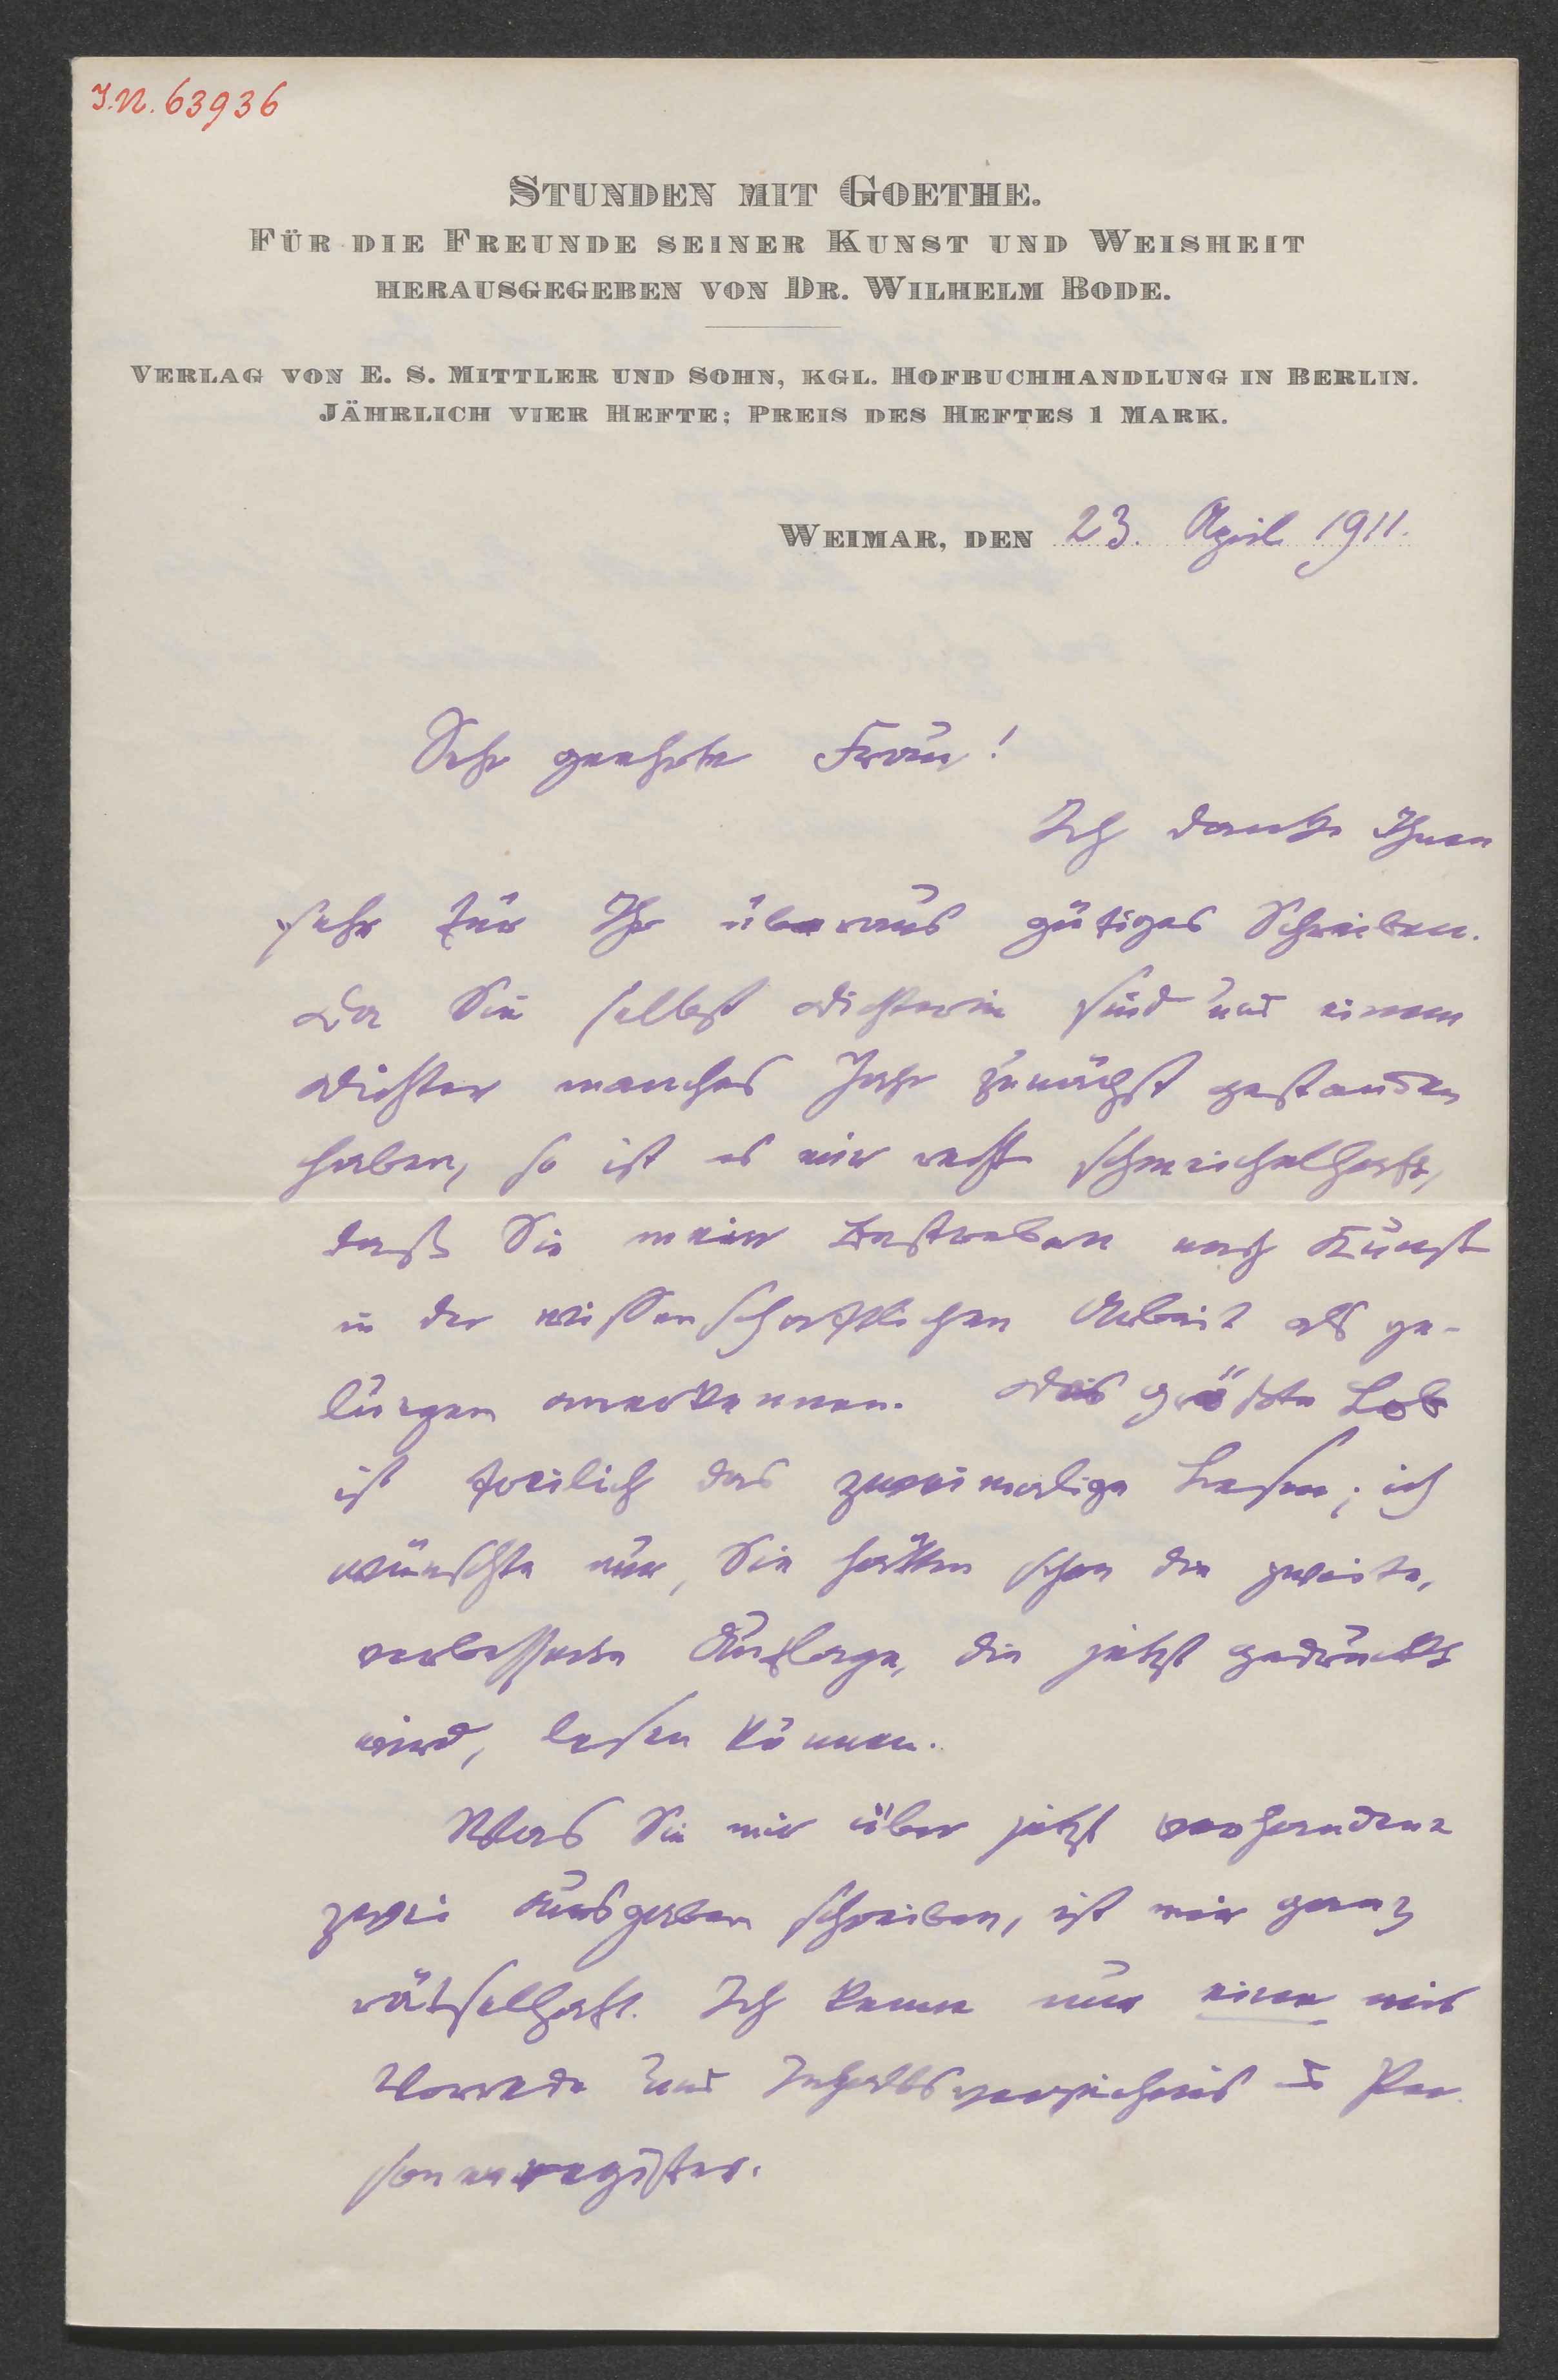 I.N. 63936
STUNDEN MIT GOETHE.
FÜR DIE FREUNDE SEINER KUNST UND WEISHEIT
HERAUSGEGEBEN VON DR. WILHELM BODE.
VERLAG VON E. S. MITTLER UND SOHN, KGL. HOFBUCHHANDLUNG IN BERLIN.
JÄHRLICH VIER HEFTE; PREIS DES HEFTES 1 MARK.
WEIMAR, DEN 23. April 1911.
Sehr geehrte Frau!
Ich danke Ihnen
sehr für Ihr überaus gütiges Schreiben.
Da Sie selbst Dichterin sind und einem
Dichter manches Jahr zunächst gestanden
haben, so ist es mir recht schmeichelhaft,
daß Sie mein Bestreben nach Kunst
in der wissenschaftlichen Arbeit als ge-
lungen anerkennen. Das größte Lob
ist freilich das zweimalige Lesen; ich
wünschte nur, Sie hätten schon die zweite,
verbesserte Auflage, die jetzt gedruckt
wird, lesen können.
Was Sie mir über jetzt vorhandene
zwei Ausgaben schreiben, ist mir ganz
rätselhaft. Ich kenne nur eine mit
Vorrede und Inhaltsverzeichnis u Per
sonenregister.